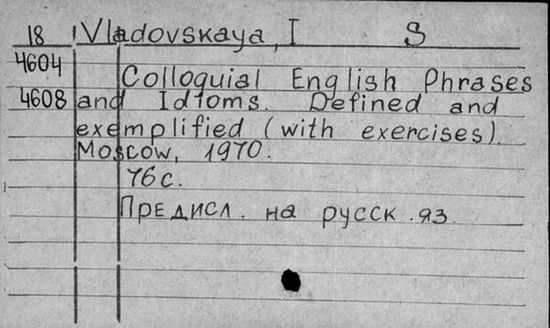 18 Vladovskaya, I S
4604
Colloquial English Phrases
4608 and Idioms. Defined and
exemplified (with exercises).
Moscow, 1970.
76 с.
Предисл. на русск. яз.